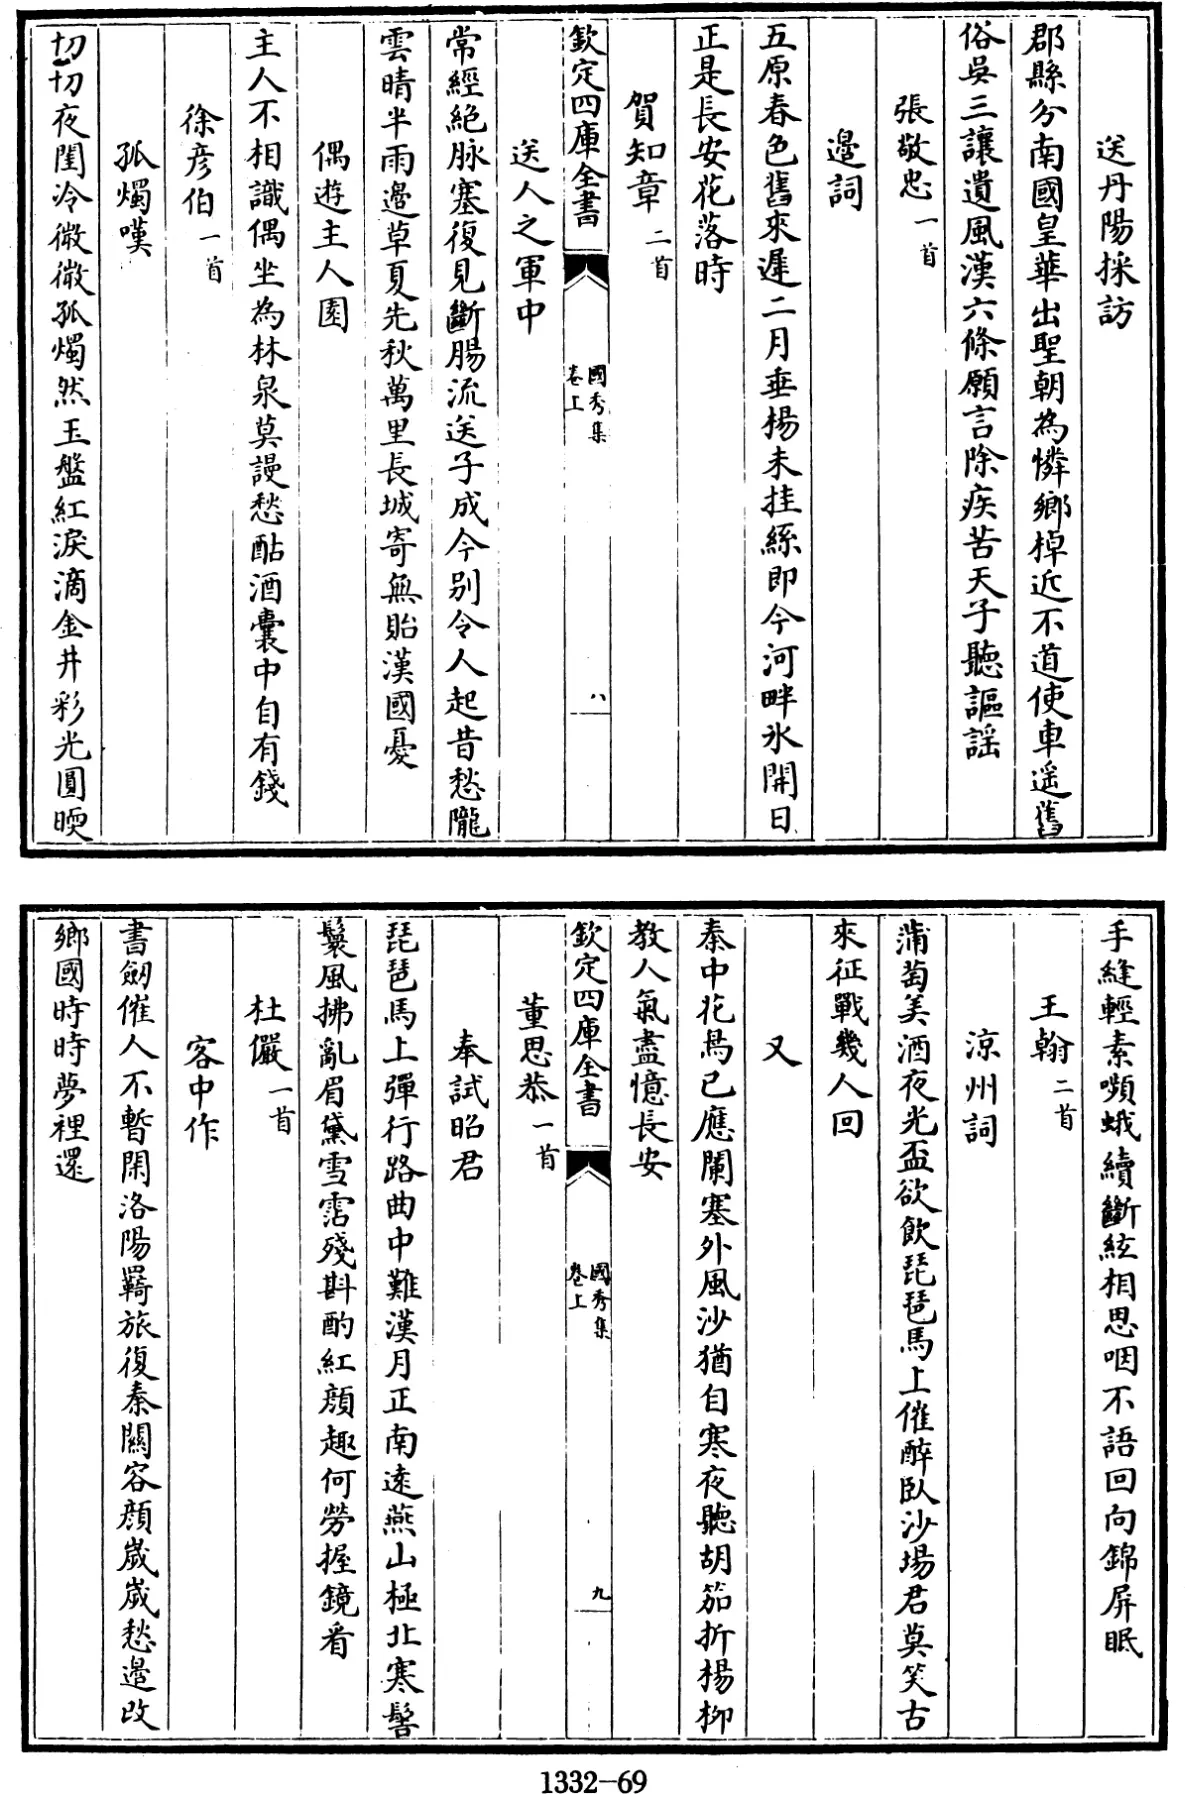 送丹陽採訪
郡縣分南國皇華出聖朝為憐鄉棹近不道使車遥舊
俗吳三讓遺風漢六條願言除疾苦天子聽謳謡
張敬忠一首
邉詞
五原春色舊來遲二月垂楊未挂絲即今河畔氷開日
正是長安花落時
賀知章二首
欽定四庫全書
國秀集
卷上
八
送人之軍中
常經絶脉塞復見斷腸流送子成今别令人起昔愁隴
雲晴半雨邉草夏先秋萬里長城寄無貽漢國憂
偶遊主人園
主人不相識偶坐為林泉莫謾愁酤酒囊中自有錢
徐彦伯一首
孤燭嘆
切切夜閨冷微微孤燭然玉盤紅淚滴金井彩光圓暝
手縫輕素嚬蛾續斷絃相思咽不語回向錦屏眠
王翰二首
涼州詞
蒲萄美酒夜光盃欲飲琵琶馬上催醉臥沙場君莫笑古
來征戰幾人回
又
秦中花鳥已應闌塞外風沙猶自寒夜聽胡笳折楊柳
教人氣盡憶長安
欽定四庫全書
國秀集
卷上
九
董思恭一首
奉試昭君
琵琶馬上彈行路曲中難漢月正南遠燕山極北寒髻
鬟風拂亂眉黛雪霑殘斟酌紅顔趣何勞握鏡看
杜儼一首
客中作
書劒催人不暫閑洛陽羇旅復秦關容顔歲歲愁邉改
鄉國時時夢裡還
1332-69